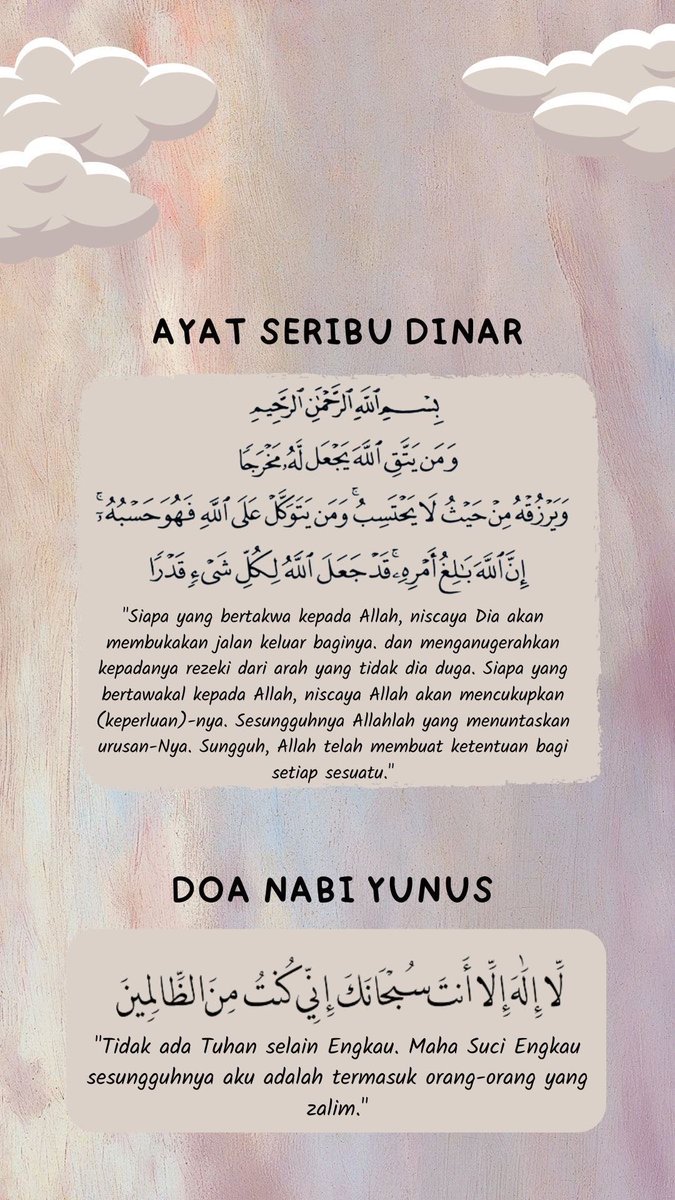 AYAT SERIBU DINAR
بِسْمِ ٱللَّهِ ٱلرَّحْمَٰنِ ٱلرَّحِيمِ
وَمَن يَتَّقِ ٱللَّهَ يَجْعَل لَّهُۥ مَخْرَجًا
وَيَرْزُقْهُ مِنْ حَيْثُ لَا يَحْتَسِبُ ۚ وَمَن يَتَوَكَّلْ عَلَى ٱللَّهِ فَهُوَ حَسْبُهُۥٓ ۚ
إِنَّ ٱللَّهَ بَٰلِغُ أَمْرِهِۦ ۚ قَدْ جَعَلَ ٱللَّهُ لِكُلِّ شَىْءٍ قَدْرًا
"Siapa yang bertakwa kepada Allah, niscaya Dia akan
membukakan jalan keluar baginya. dan menganugerahkan
kepadanya rezeki dari arah yang tidak dia duga. Siapa yang
bertawakal kepada Allah, niscaya Allah akan mencukupkan
(keperluan)-nya. Sesungguhnya Allahlah yang menuntaskan
urusan-Nya. Sungguh, Allah telah membuat ketentuan bagi
setiap sesuatu."
DOA NABI YUNUS
لَّا إِلَٰهَ إِلَّا أَنتَ سُبْحَانَكَ إِنِّي كُنتُ مِنَ الظَّالِمِينَ
"Tidak ada Tuhan selain Engkau. Maha Suci Engkau
sesungguhnya aku adalah termasuk orang-orang yang
zalim."